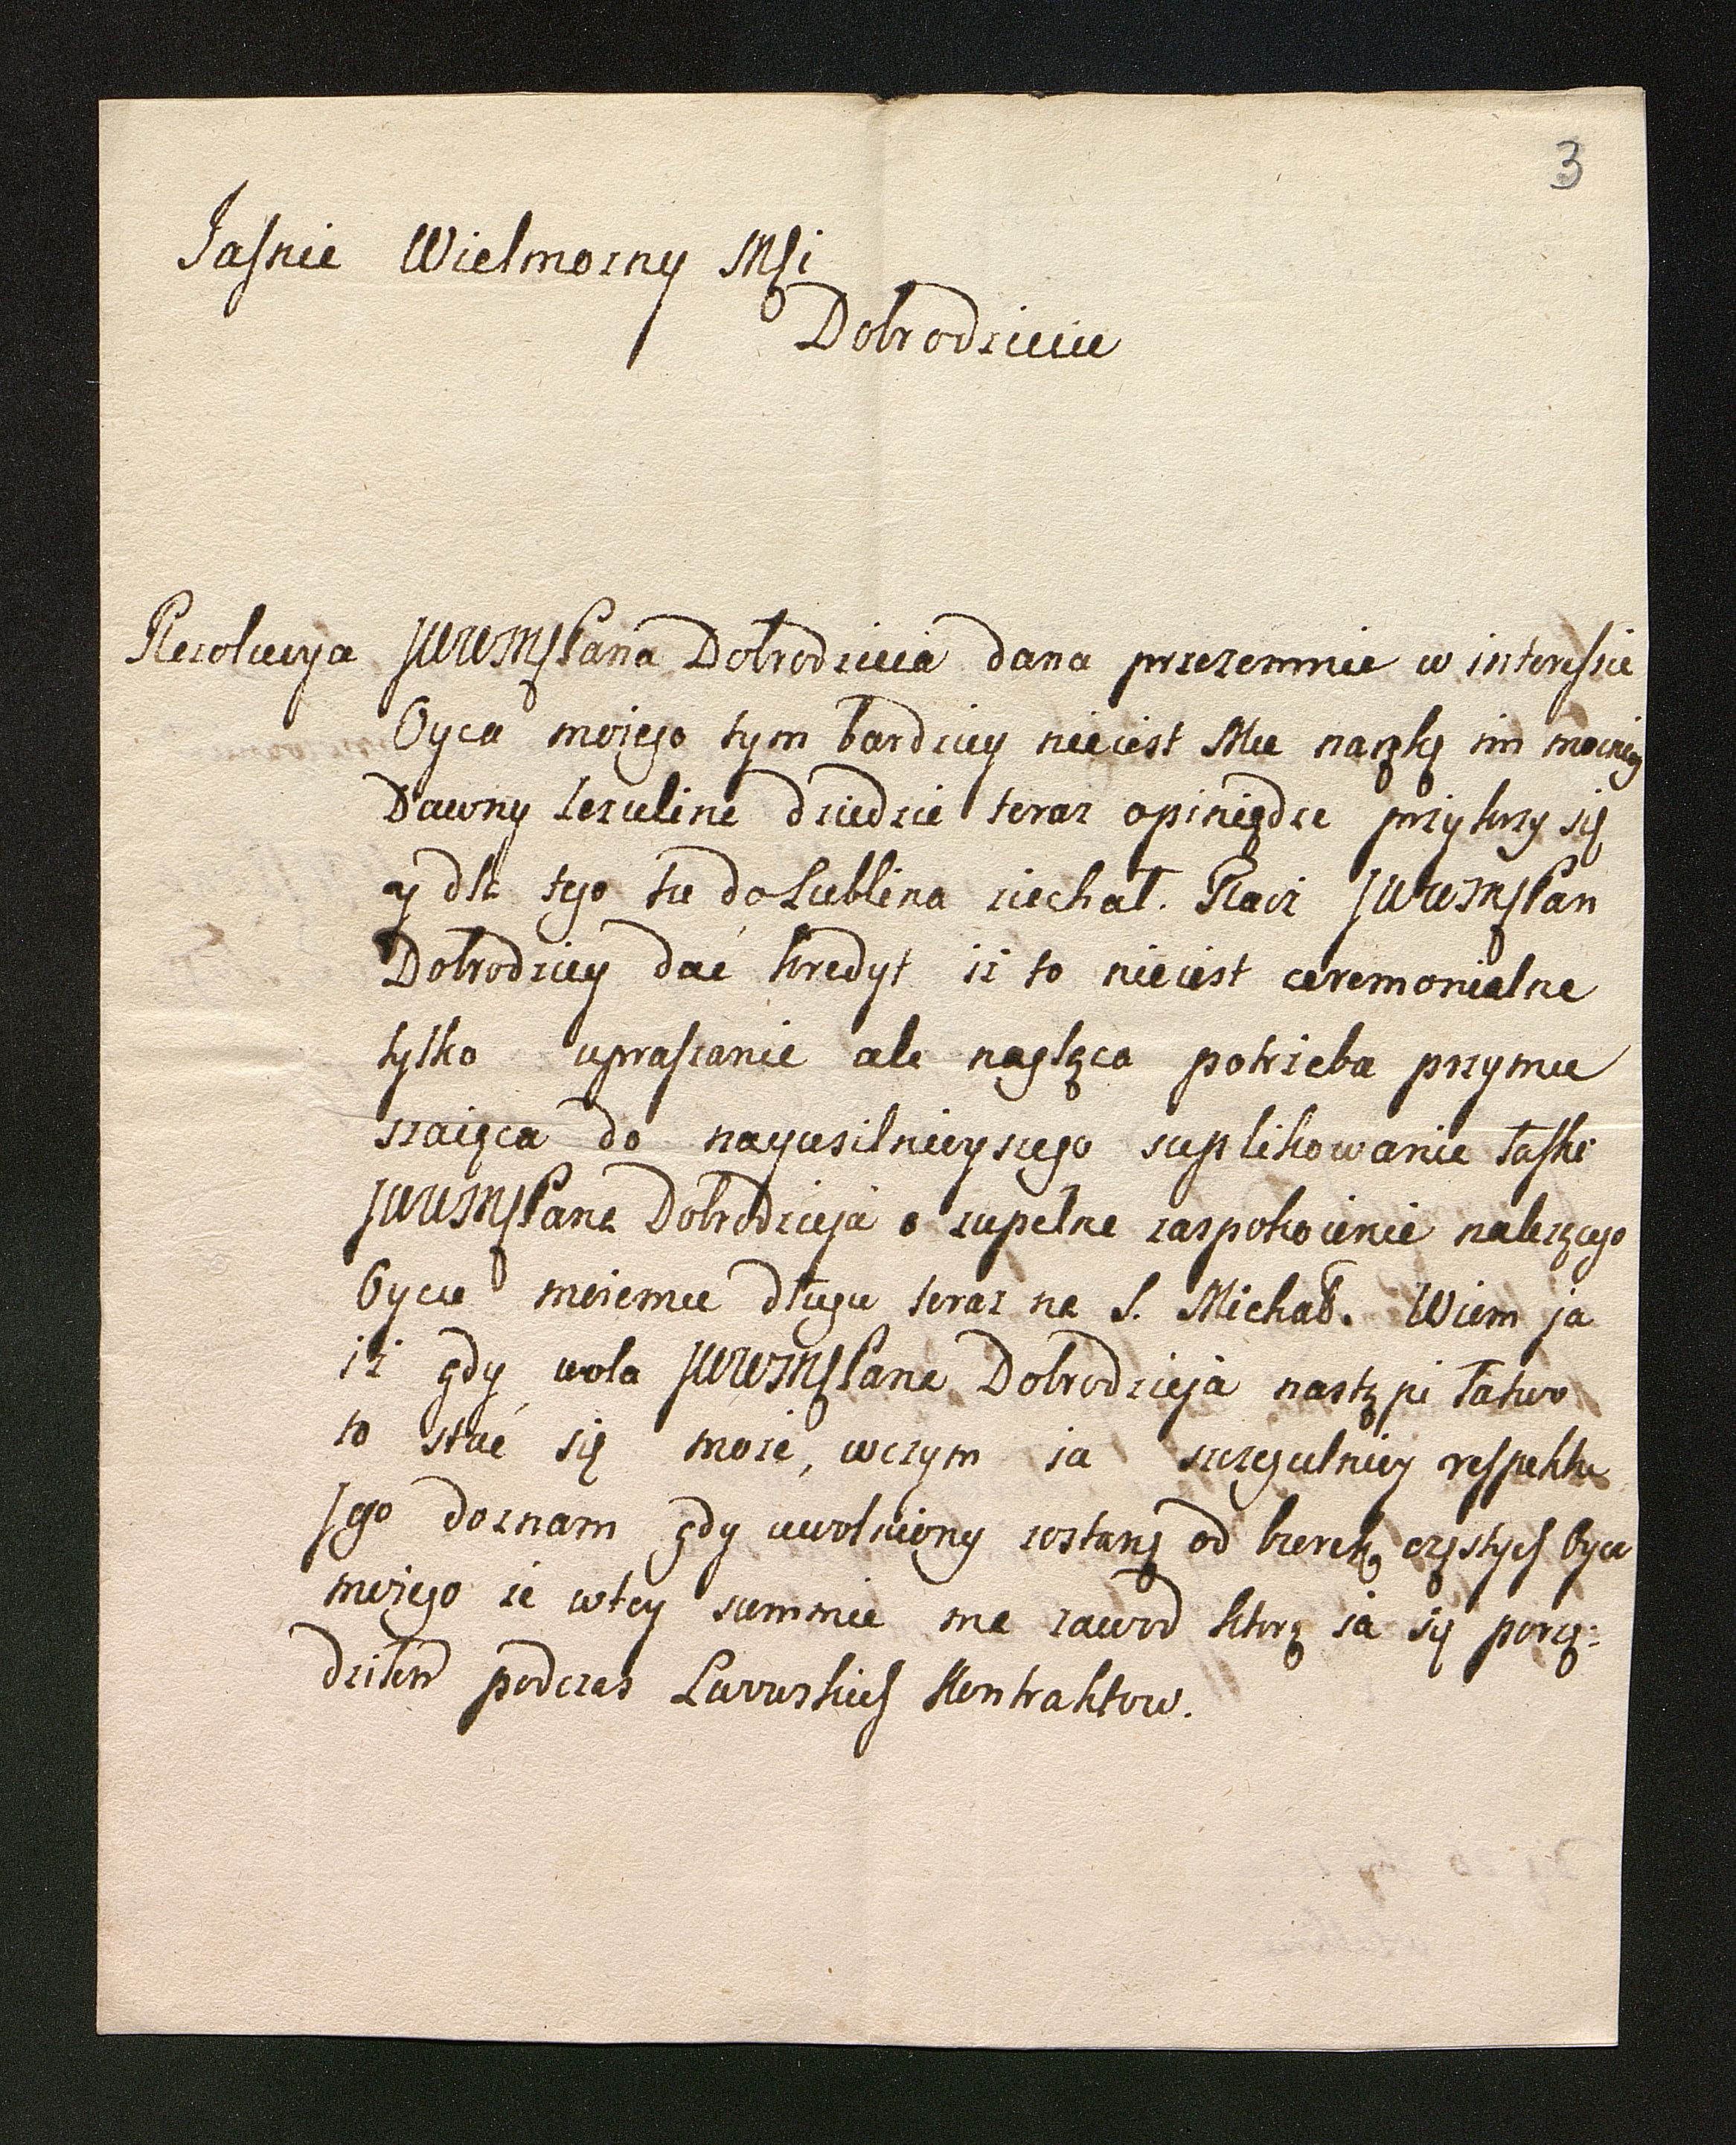 3
Jasnie Wielmozny Mſci
Dobrodzieiu
Rezolucya JWWMſPana Dobrodzieia dana przezemnie w interessie
Oyca mojego tym bardziey nieiest Mu na rękę im mocniey
Dawny Jezuline dziedzic teraz opiniądze przykrzy się
y dla tego tu do Lublina ziechał. Racz JWWMſPan
Dobrodziey dać kredyt iż to nieiest ceremonialne
tylko upraszanie ale nagląca potrzeba przymu
szaiąca do nayusilnieyszego suplikowania łaski
JWWMſPana Dobrodzieja o zupełne zaspokoienie należącego
Oycu moiemu długu teraz na S. Michał. Wiem ja
iż gdy wola JWWMſPana Dobrodzieja nastąpi łatwo
to stać się może, wczym ia szczegulniey respektu
Jego doznam gdy uwolniony zostanę od turek częstych Oyca
mojego że wtey summie ma zawod ktorą ia się porzą=
dziłem podczas Lwowskich Kontraktow.